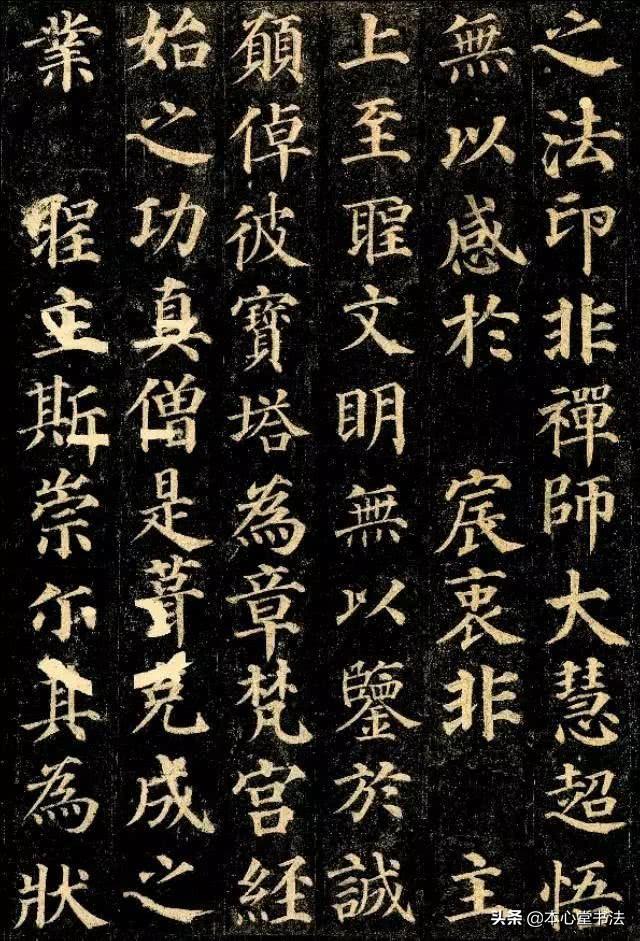 之法印非禪師大慧超悟
無以感於 宸衷非 主
上至聖文明無以鑒於誠
願倬彼寶塔為章梵宮經
始之功真僧是葺克成之
業 聖主斯崇尔其為狀
头条 @本心堂书法